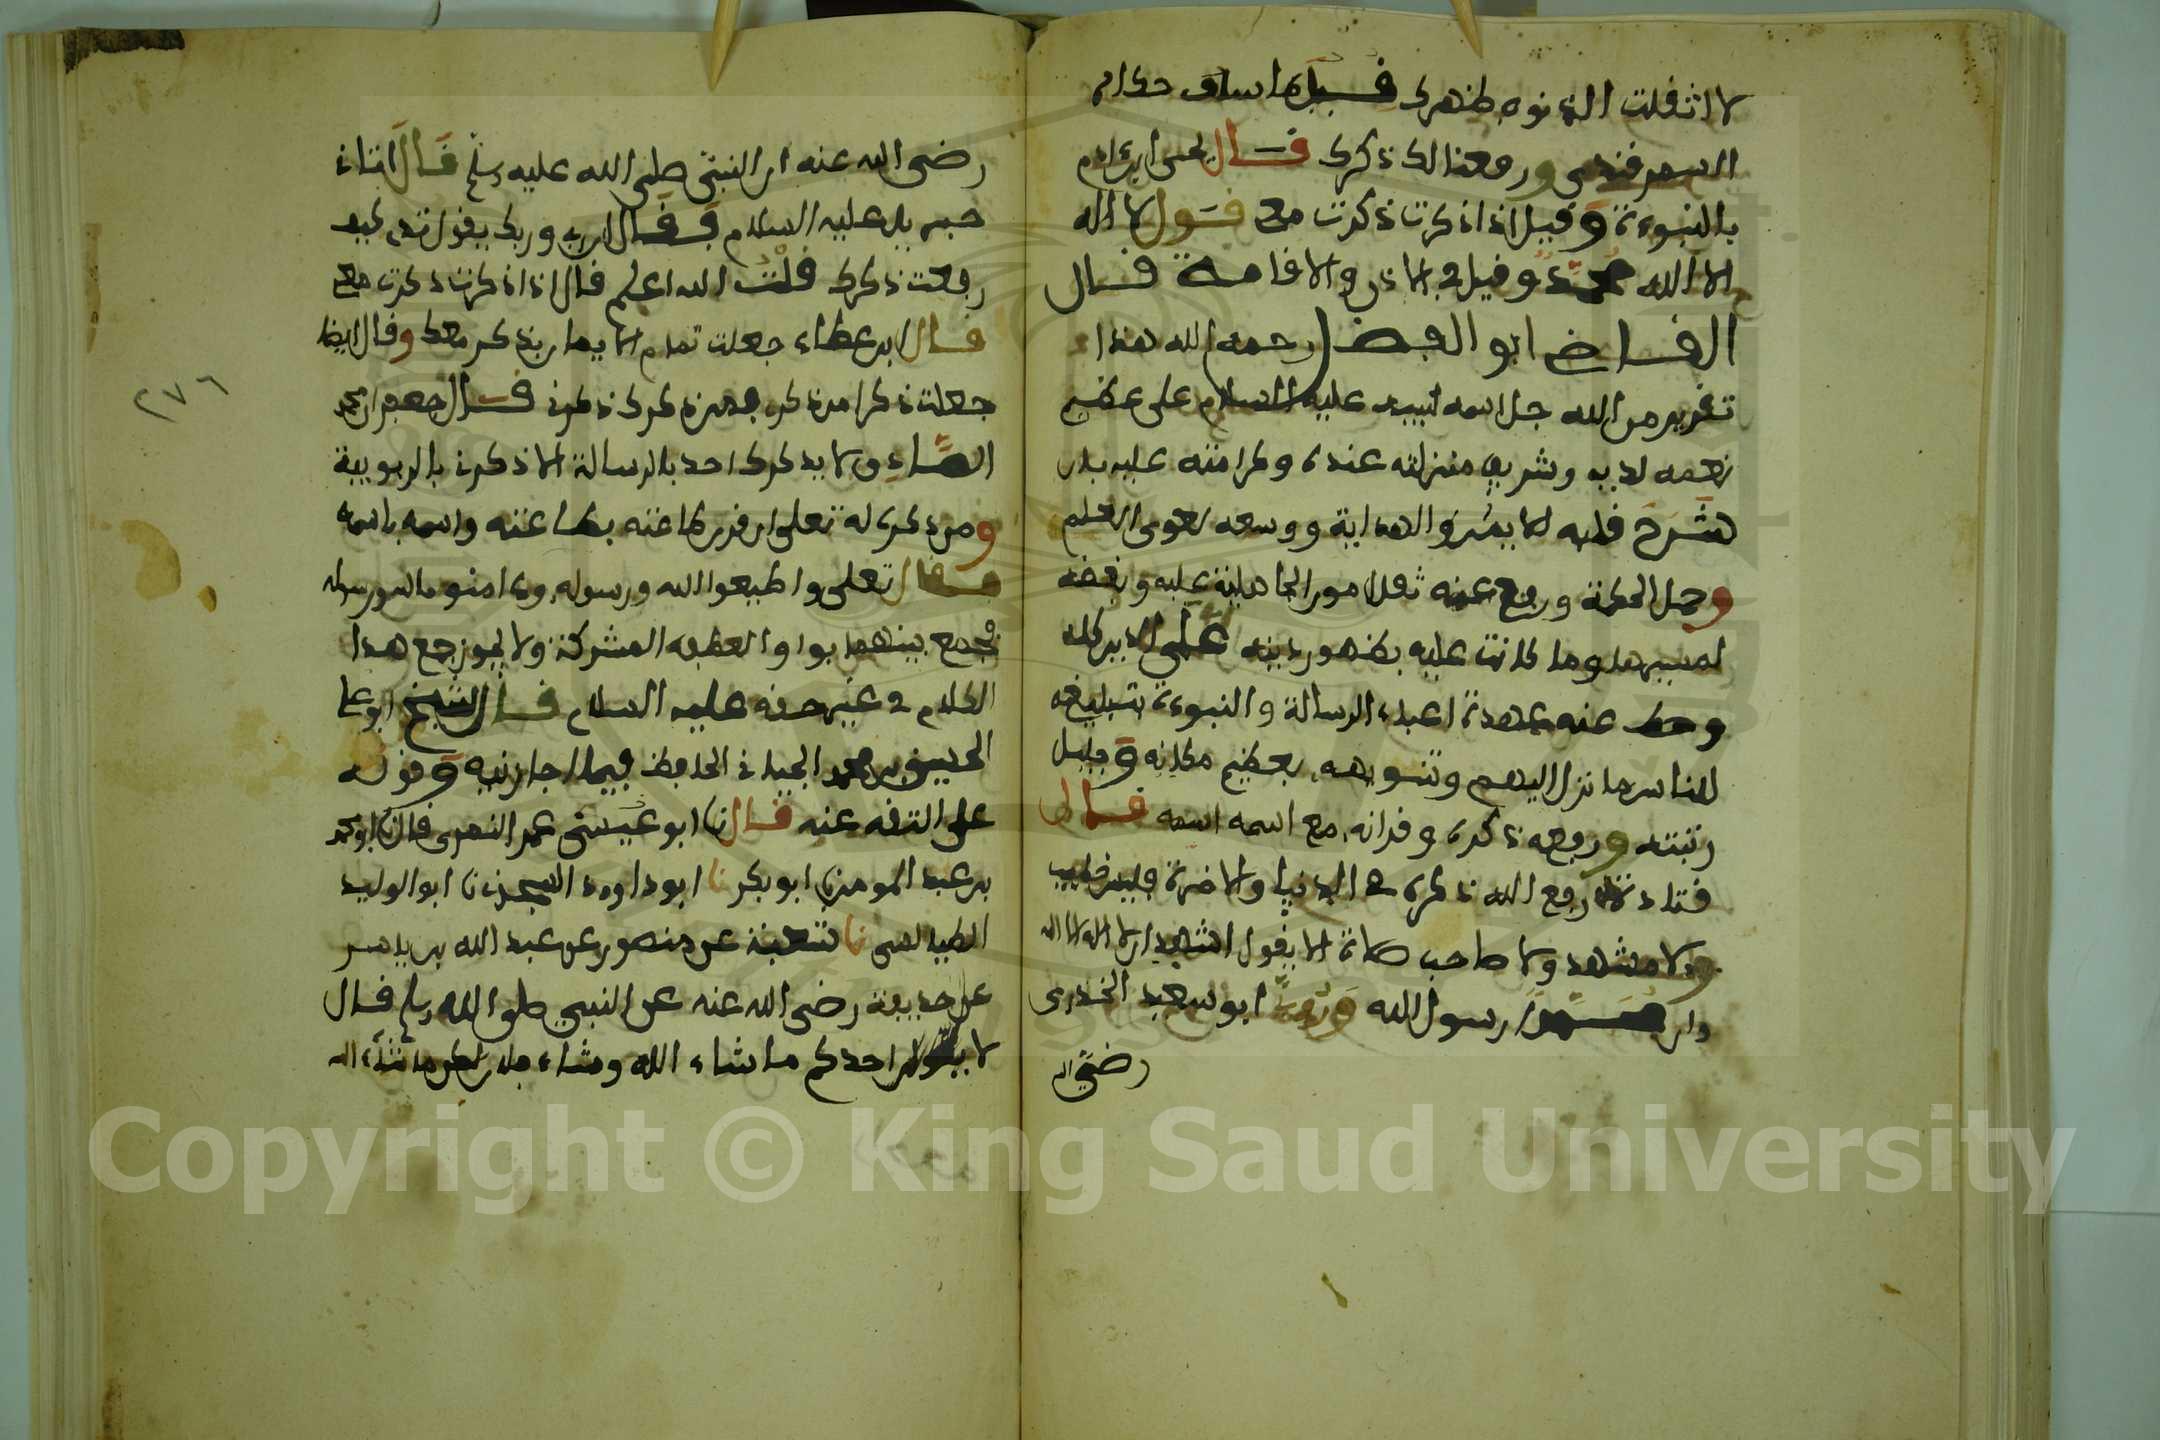 لاثقلت الذنوب ظهرك قيل ما سلف حكاه
السمرقندي ورفعنا لك ذكرك قال يحيى ابن ءادم
بالنبوءة وقيل اذا ذكرت ذكرت معي قول لا اله
الا الله محمد وقيل في الاذان والاقامة قال
القاضي ابو الفضل رحمه الله هذا
تقرير من الله جل اسمه لنبيه عليه السلام على عظيم
نعمه لديه وشريف منزلته عنده وكرامته عليه بان
شرح قلبه للايمان والهداية ووسعه لوعي العلم
وحمل الحكمة ورفع عنه ثقل امور الجاهلية عليه وبغضه
لسيرها وما كانت عليه بظهور دينه على الدين كله
وحط عنه عهدة اعباء الرسالة والنبوءة بتبليغه
للناس ما نزل اليهم وتنويهه بعظيم مكانه وجليل
رتبته ورفعه ذكره وقرانه مع اسمه اسمه قال
قتادة رفع الله ذكره في الدنيا والاخرة فليس خطيب
ولا متشهد ولا صاحب صلاة الا يقول اشهد ان لا اله الا الله
وان محمدا رسول الله وروى ابو سعيد الخدري
رضي الله
رضي الله عنه ان النبي صلى الله عليه وسلم قال اتاني
جبريل عليه السلام فقال ان ربي وربك يقول تدري كيف
رفعت ذكرك قلت الله اعلم قال اذا ذكرت ذكرت معي
قال ابن عطاء جعلت تمام الايمان بذكر معك وقال ايضا
جعلتك ذكرا من ذكري فمن ذكرك ذكرني قال جعفر بن محمد
الصادق لا يذكرك احد بالرسالة الا ذكرني بالربوبية
ومن ذكره له تعلى ان قرن طاعته بطاعته واسمه باسمه
فقال تعلى واطيعوا الله ورسوله وءامنوا بالله ورسوله
فجمع بينهما بواو العطف المشركة ولا يجوز جمع هذا
الكلام في غير حقه عليه السلام قال الشيخ ابو علي
الحسين بن محمد الجياني الحافظ فيما اجازنيه وقرأته
على الثقة عنه قال نا ابو عمر النمري قال نا ابو محمد
بن عبد المومن نا ابو بكر نا ابو داود السجزي نا ابو الوليد
الطيالسي نا شعبة عن منصور عن عبد الله بن يسار
عن حذيفة رضي الله عنه عن النبي صلى الله وسلم قال
لا يقولن احدكم ما شاء الله وشاء فلان ولكن ما شاء الله
٢٧٦
Copyright © King Saud University